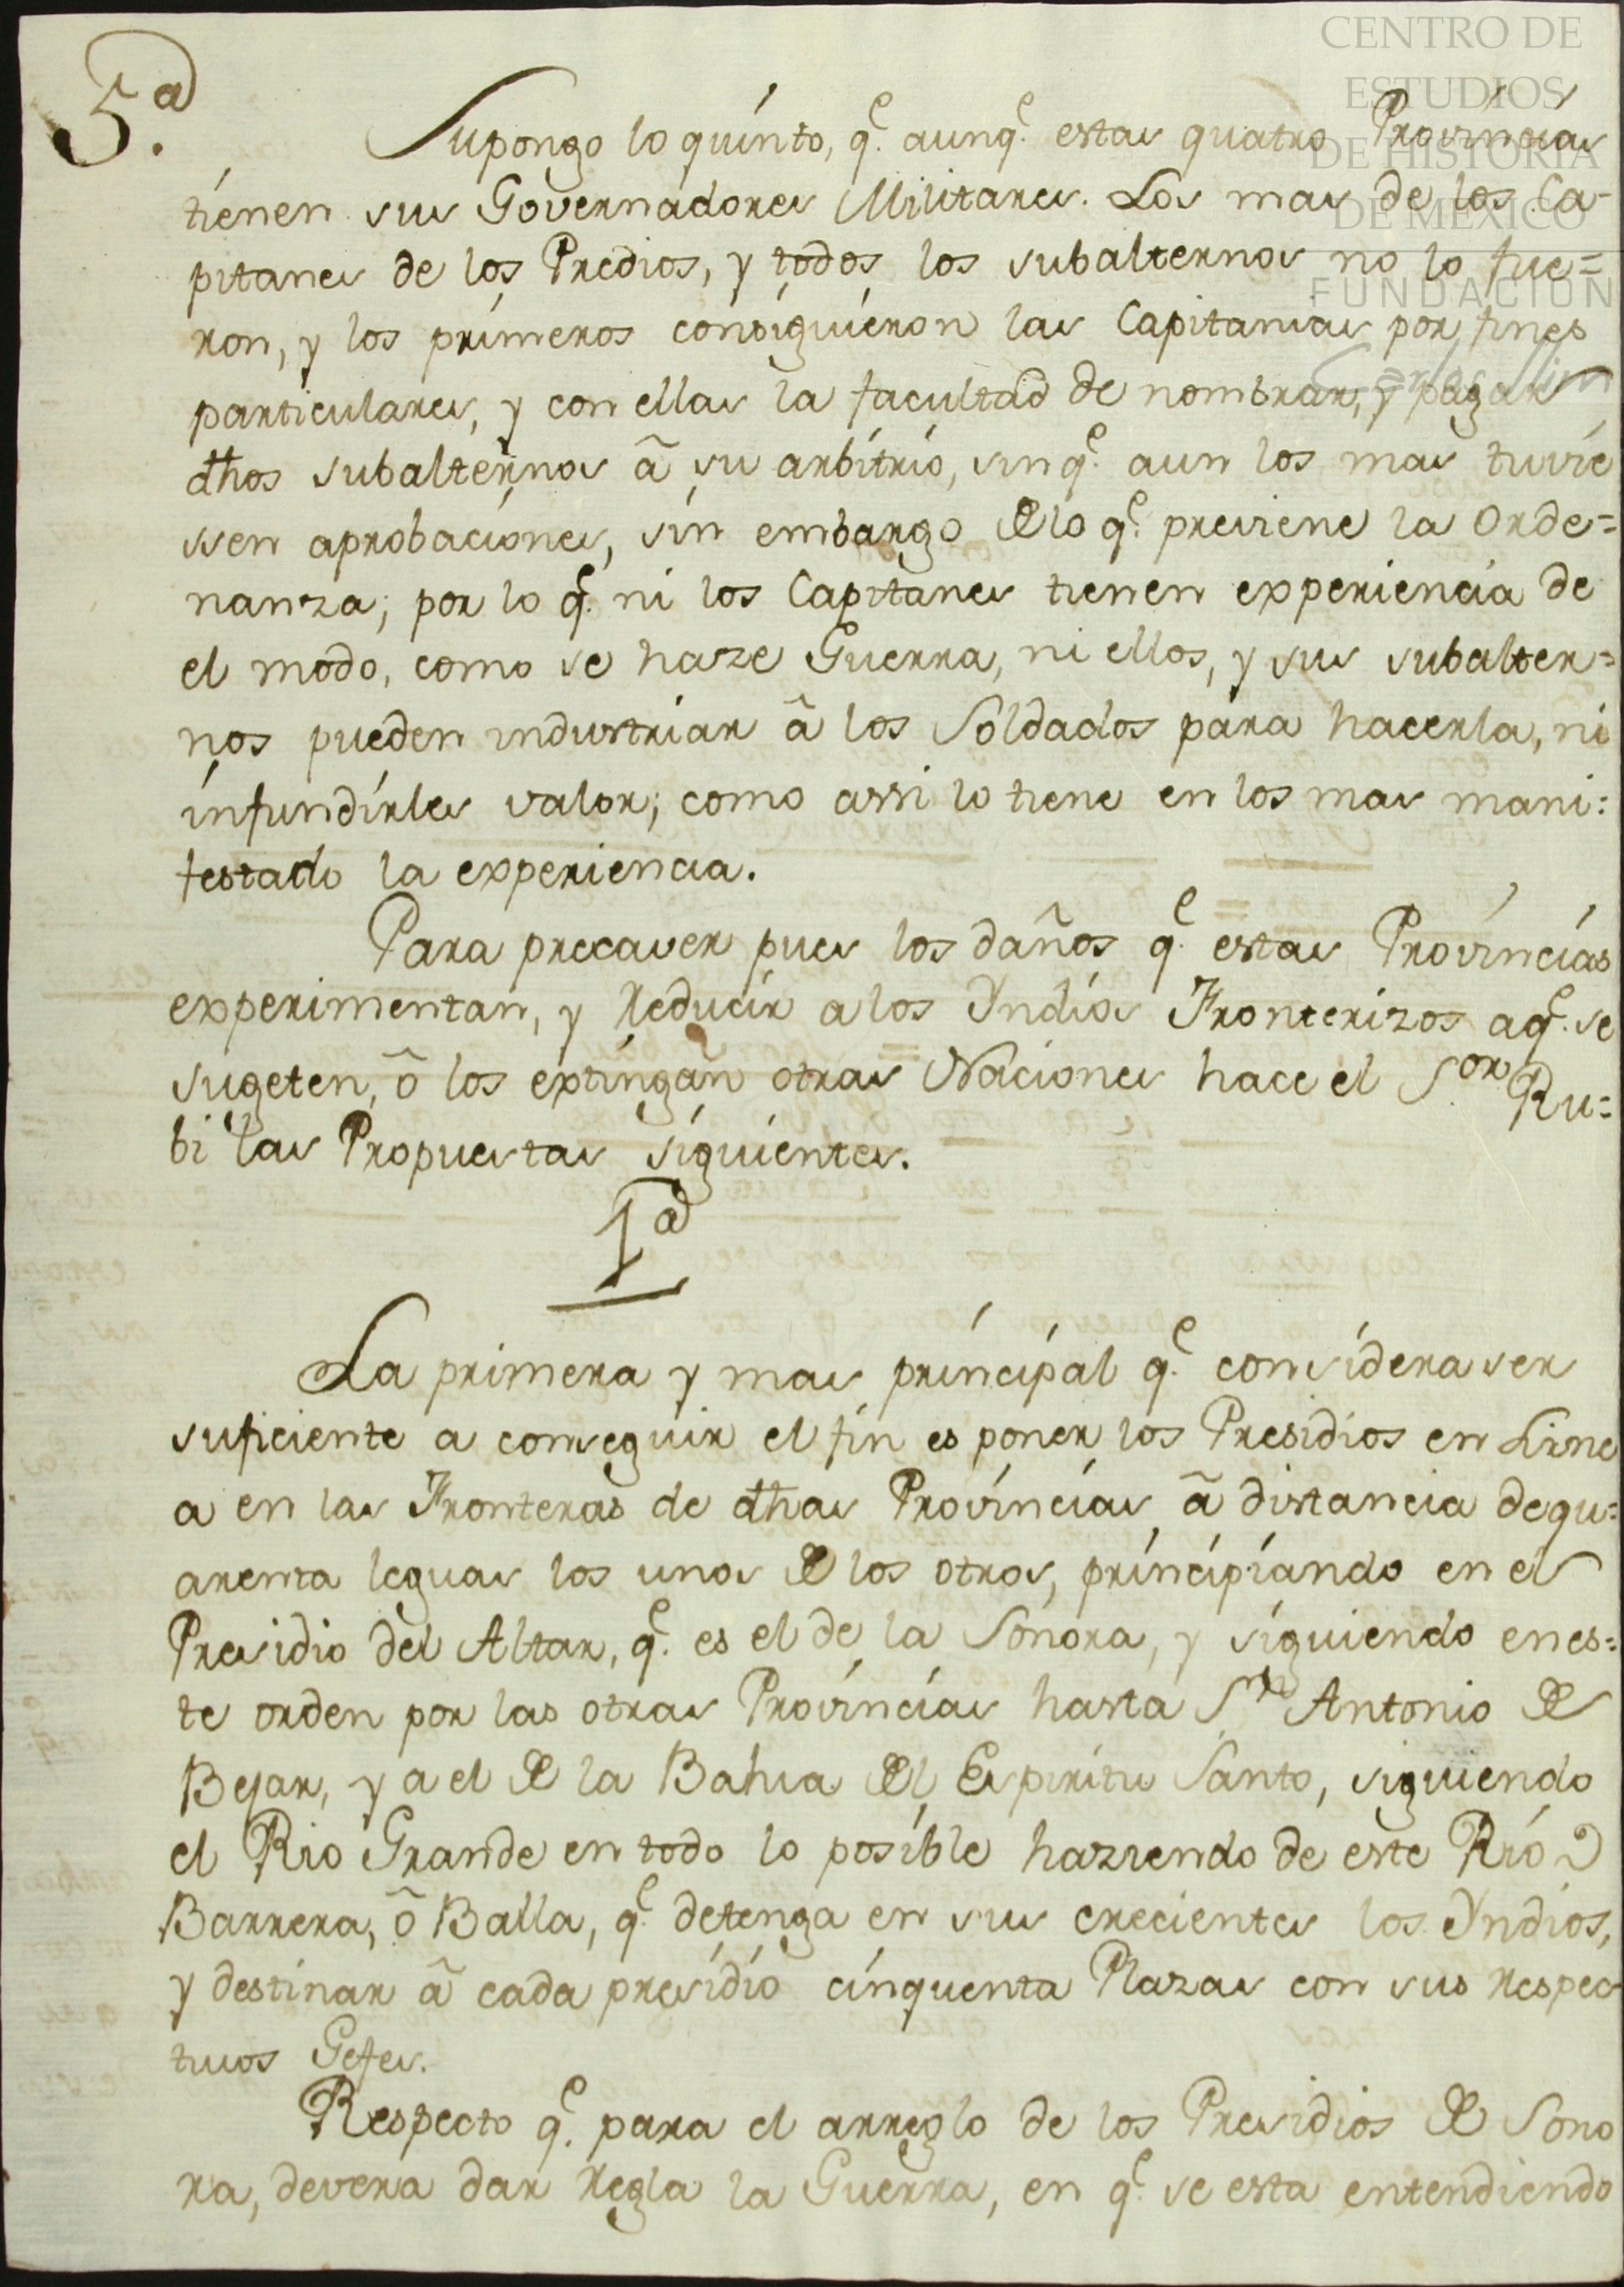 CENTRO DE
ESTUDIOS
DE HISTORIA
DE MÉXICO
FUNDACIÓN
Carlos Slim
5.a
Supongo lo quinto, q.e aunq.e estas quatro Provincias
tienen sus Governadores Militares. Los mas de los Ca-
pitanes de los Predios, y todos los subalternos no lo fue=
ron, y los primeros consiguieron las Capitanias por fines
particulares, y con ellas la facultad de nombrar, y pagar
dhos subalternos â su arbitrio, sin q.e aun los mas tuvie
ssen aprobaciones, sin embargo de lo q.e previene la Orde=
nanza; por lo q.e ni los Capitanes tienen experiencia de
el modo, como se haze Guerra, ni ellos, y sus subalter=
nos pueden industriar â los Soldados para hacerla, ni
infundirles valor; como assi lo tiene en los mas mani:
festado la experiencia.
Para precaver pues los daños q.e estas Provincias
experimentan, y reducir a los Yndios Fronterizos aq.e se
sugeten, ô los extingan otras Naciones hace el S.or Ru=
bi las Propuestas siguientes.
1a
La primera y mas principal q.e considera ser
suficiente a conseguir el fin es poner los Presidios en Line
a en las Fronteras de dhas Provincias â distancia de qu=
arenta leguas los unos de los otros, principiando en el
Presidio del Altar, q.e es el de la Sonora, y siguiendo en es=
te orden por las otras Provincias hasta Sn Antonio de
Bejar, y a el de la Bahia del Espiritu Santo, siguiendo
el Rio Grande en todo lo posible haziendo de este Rio
Barrera, ô Balla, q.e detenga en sus crecientes los Yndios,
y destinar â cada presidio cinquenta Plazas con sus respec
tivos Gefes.
Respecto q.e para el arreglo de los Presidios de Sono
ra, devera dar regla la Guerra, en q.e se esta entendiendo